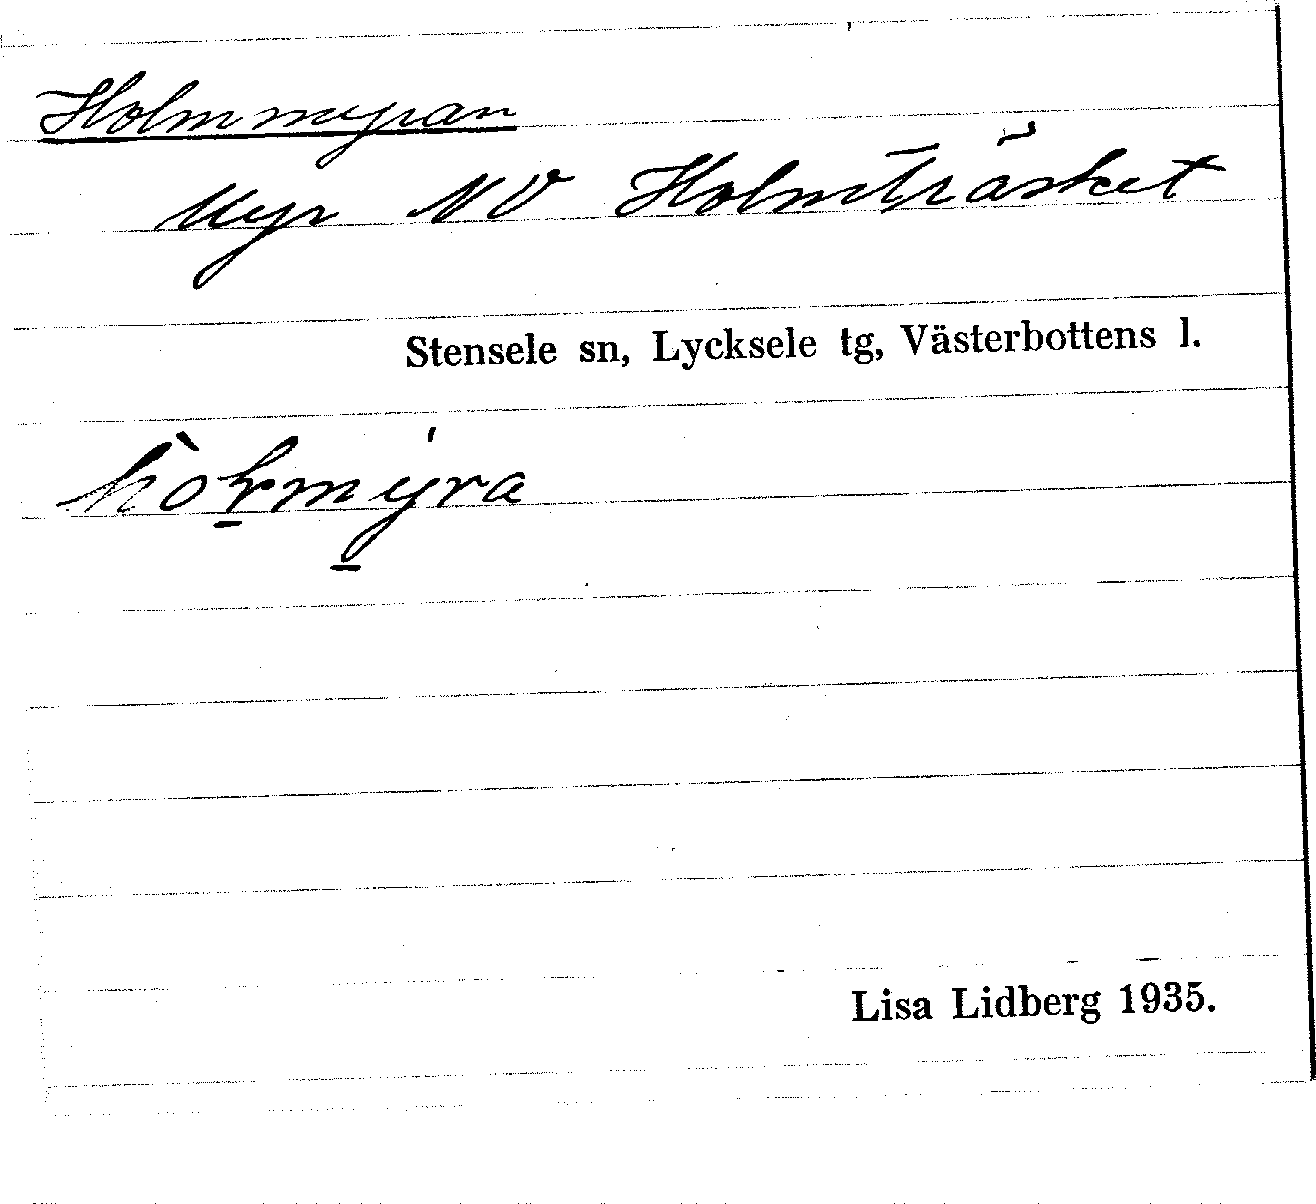 Holmmyran
Myr NV Holmträsket
Stensele sn, Lycksele tg, Västerbottens l.
Lisa Lidberg 1935.